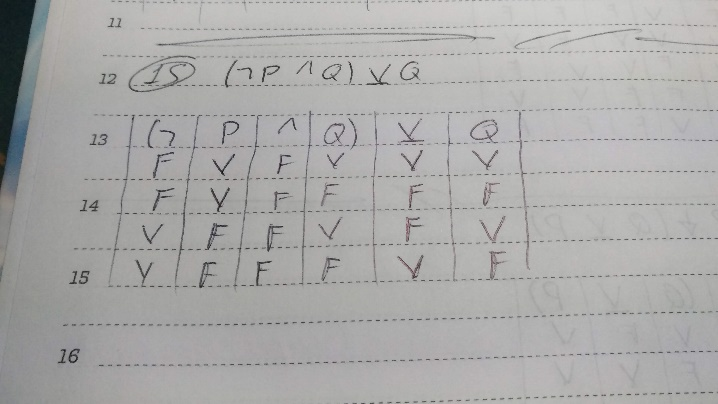 11
12 15 (¬P ∧ Q) ⊻ Q
13 (¬ P ∧ Q) ⊻ Q
F V F V V V
14 F V F F F F
V F F V F V
15 V F F F V F
16